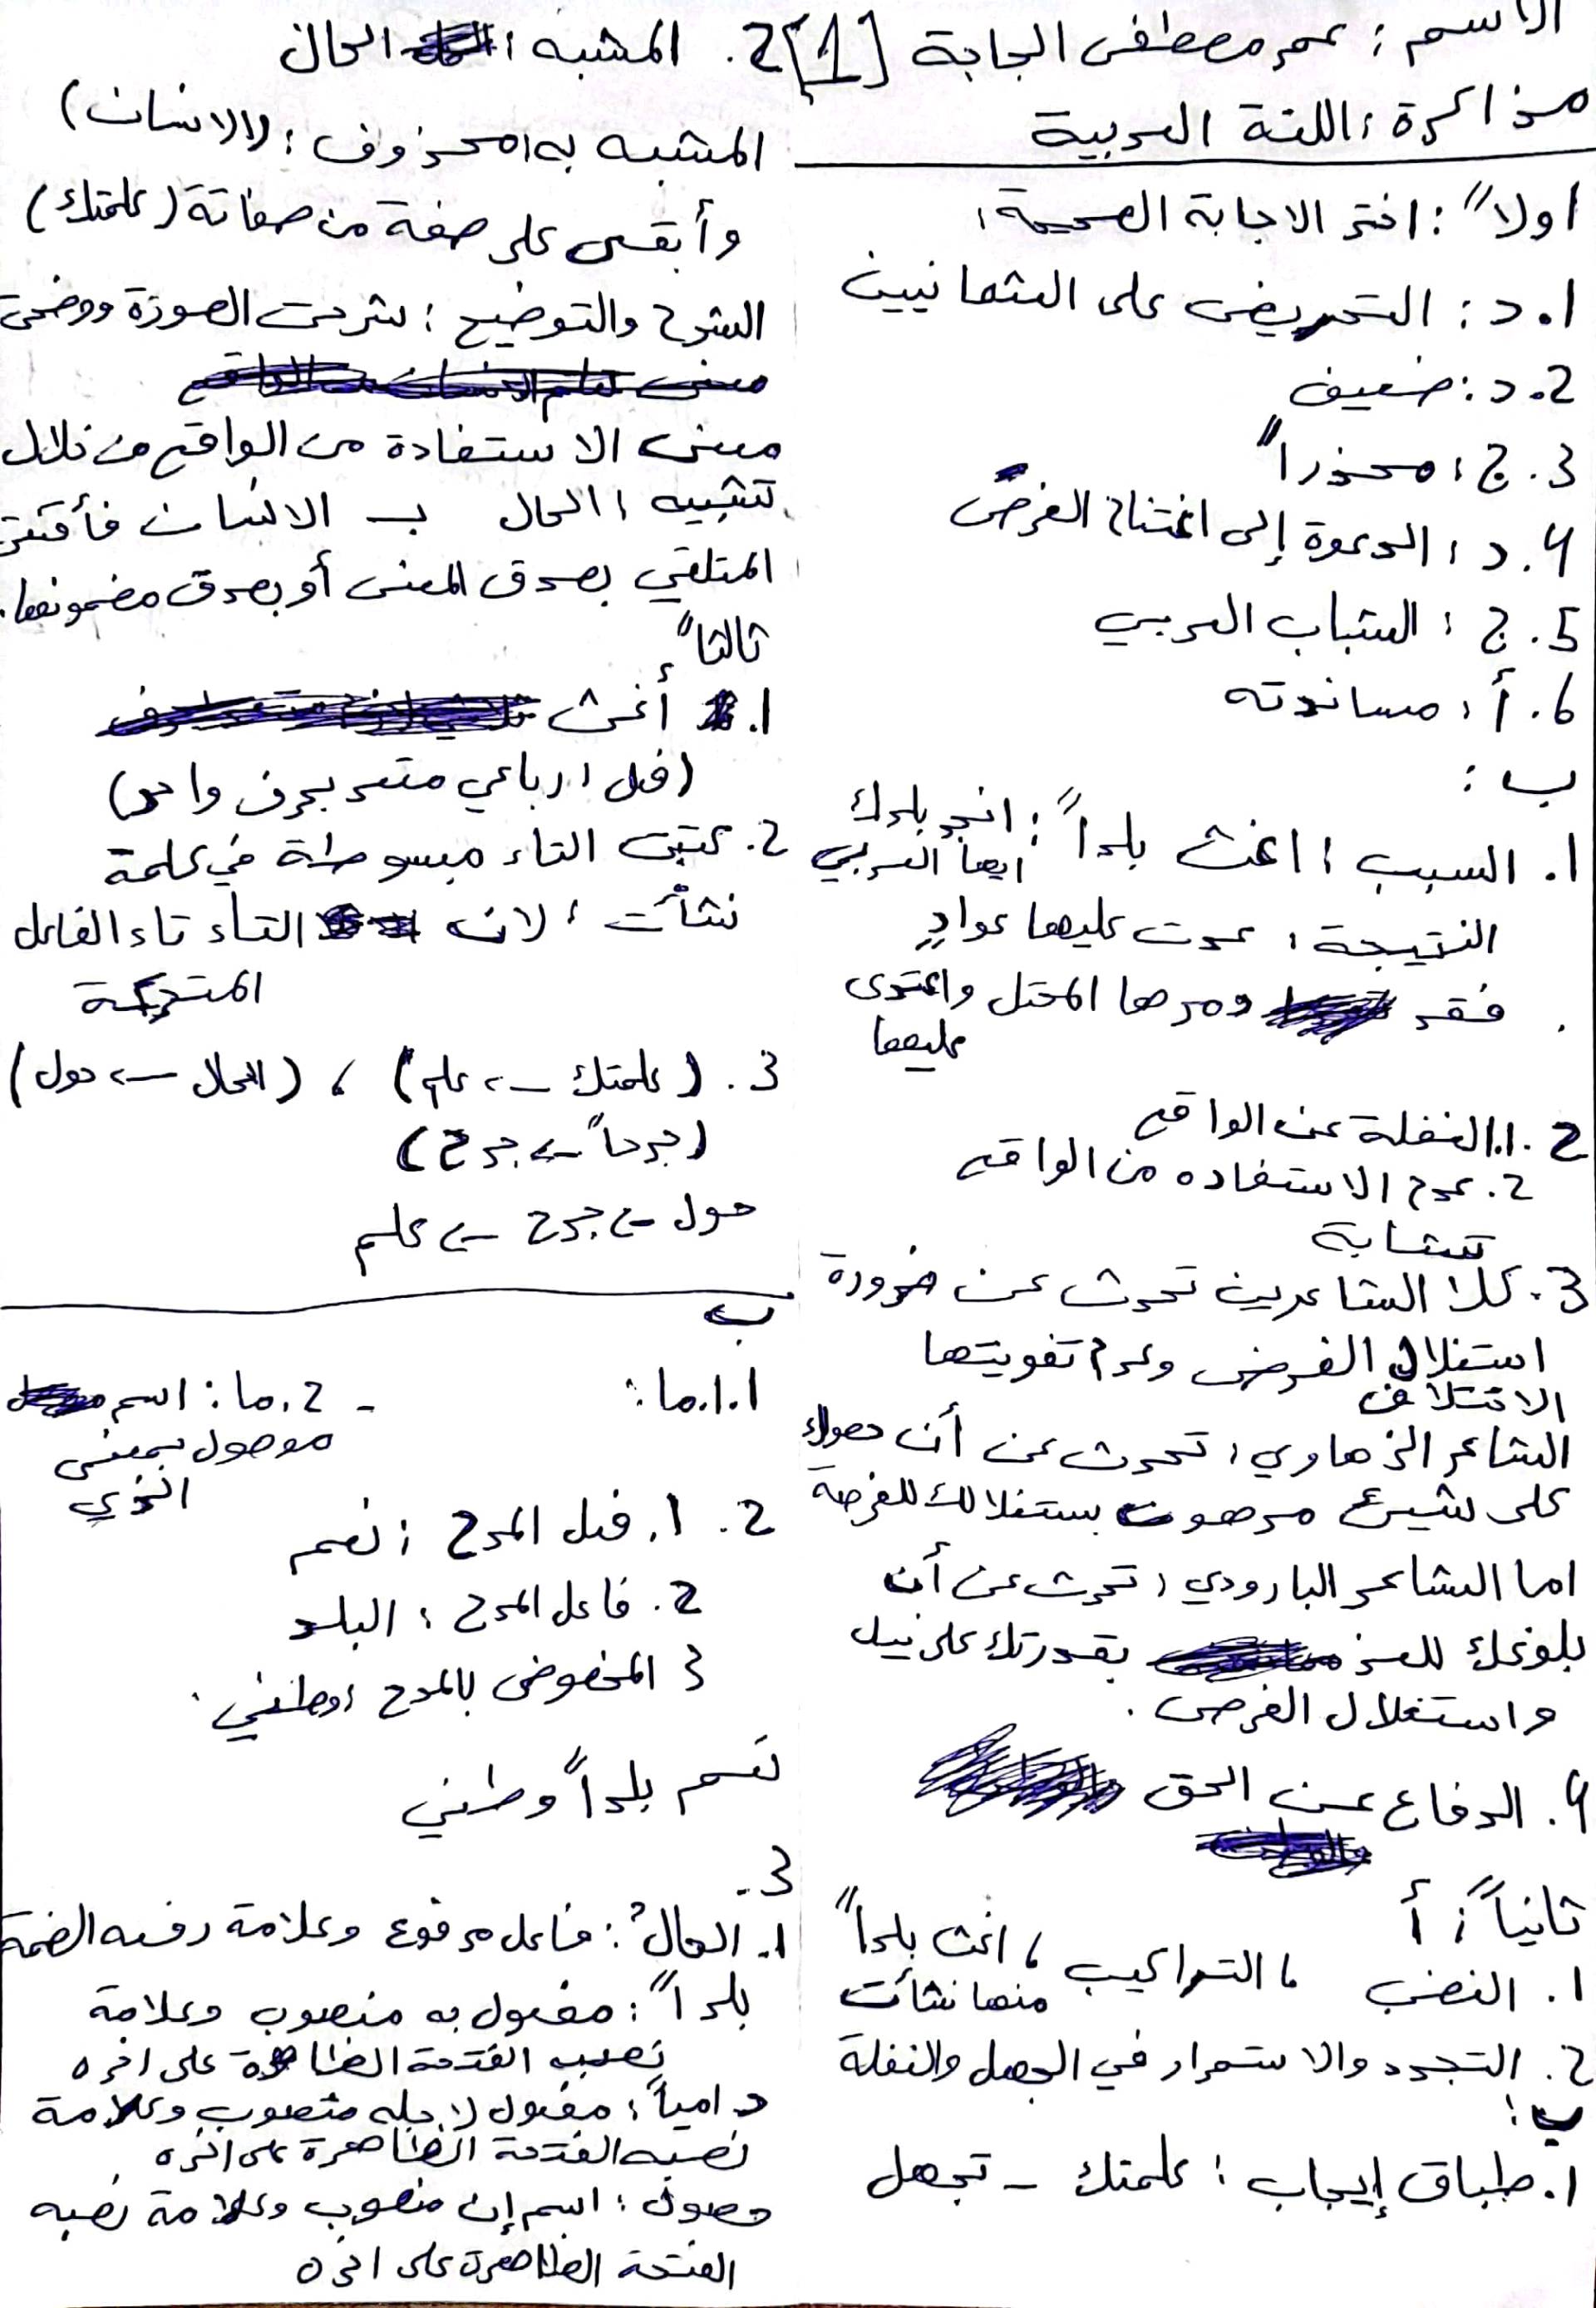 الاسم : عمر مصطفى الجاجة [1]
مذاكرة : اللغة العربية
اولا" : اختر الاجابة الصحيحة :
1. د : التحريض على العثمانيين
2. د : ضعيف
3. ج : محذرا"
4. د : الدعوة إلى اغتنام الفرص
5. ج : الشباب العربي
6. أ : مساندته
ب :
1. السبب : اغث بلدا" : انجد بلدك
ايها العربي
النتيجة : عدت عليها عوادٍ
فقد دمرها المحتل واعتدى
عليها
2. 1. الغفلة عن الواقع
2. عدم الاستفاده من الواقع
تشابة
3. كلا الشاعرين تحدث عن ضرورة
استغلال الفرص وعدم تفويتها
الاختلاف
الشاعر الزهاوي : تحدث عن أن حصولك
على شيئ مرهون بستغلالك للفرصة
اما الشاعر البارودي : تحدث عن أن
بلوغك للعز بقدرتك على نيل
واستغلال الفرص .
4. الدفاع عن الحق
ثانياً" : أ
1. الغضب ، التراكيب ، اغث بلداً"
منها نشأت
2. التجدد والاستمرار في الجهل والغفلة
ب :
1. طباق إيجاب : علمتك - تجهل
2. المشبه : الحال
المشبه به : محذوف : (الانسان)
وأبقى على صفة من صفاتة (علمتك)
الشرح والتوضيح : شرحت الصورة ووضحت
معنى الاستفادة من الواقع من خلال
تشبيه : الحال ب الانسان فأقنعت
المتلقي بصدق المعنى أو بصدق مضمونها.
ثالثا"
1. أغث
(فعل رباعي متعد بحرف واحد)
2. كتبت التاء مبسوطة في كلمة
نشأت : لان التاء تاء الفاعل
المتحركة
3. (علمتك ← علم) ، (الحال ← حول)
(جرحاً" ← جرح)
حول ← جرح ← علم
ب
1. 1. ما :
- 2. ما : اسم
موصول بمعنى
الذي
2. 1. فعل المدح : نعم
2. فاعل المدح : البلد
3 المخصوص بالمدح : وطني .
نعم بلداً" وطني
3.
1. الحالُ : فاعل مرفوع وعلامة رفعه الضمة
بلداً" : مفعول به منصوب وعلامة
نصبه الفتحة الظاهرة على اخره
دامياً : مفعول لاجله منصوب وعلامة
نصبه الفتحة الظاهرة على اخره
حصول : اسم إن منصوب وعلامة نصبه
الفتحة الظاهرة على اخره